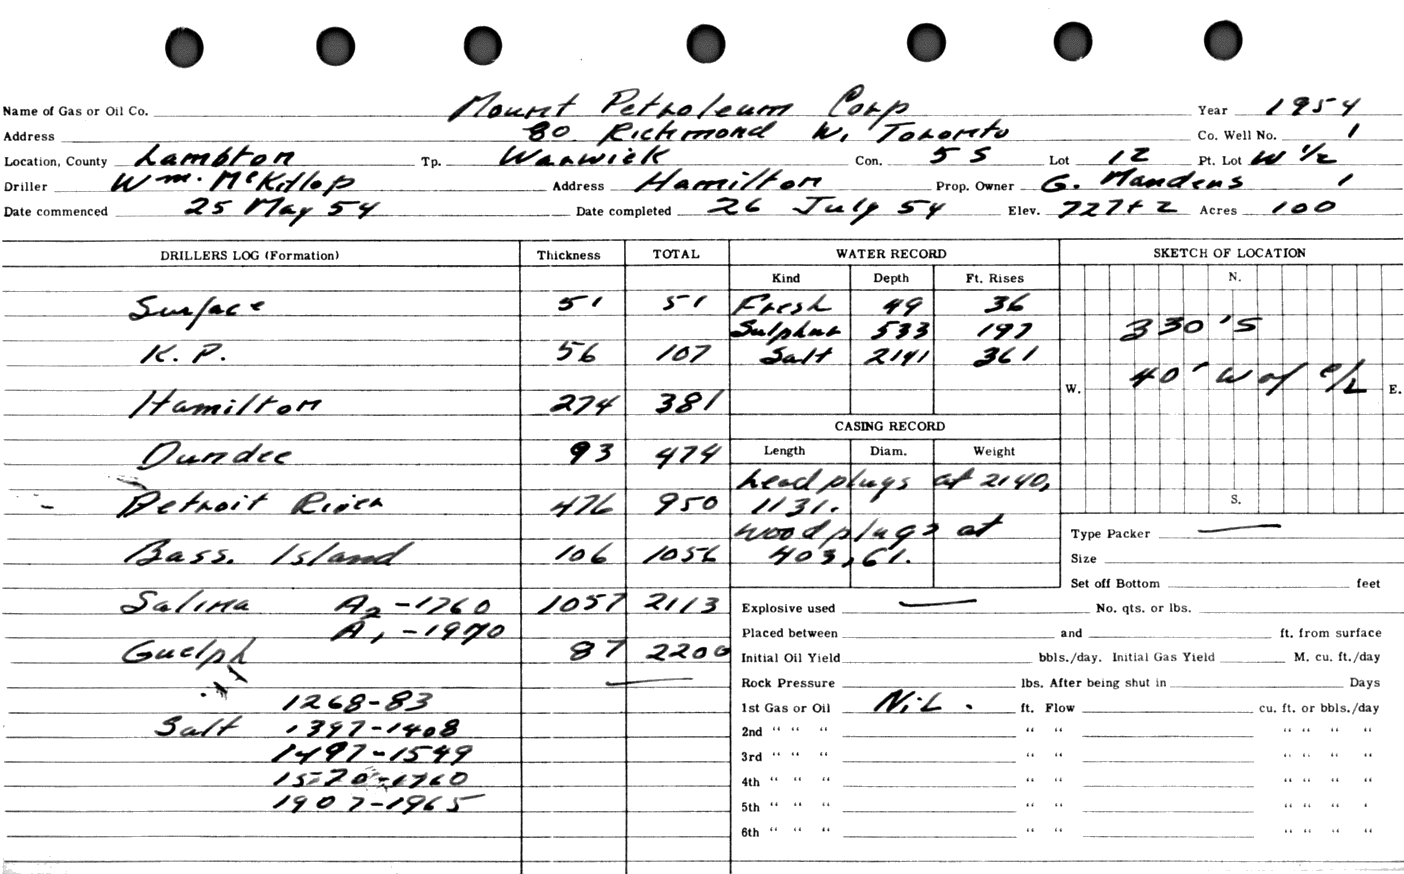 Name of Gas or Oil Co. Mount Petroleum Corp Year 1954
Address 80 Richmond W. Toronto Co. Well No. 1
Location, County Lambton Tp. Warwick Con. 5 S Lot 12 Pt. Lot W 1/2
Driller Wm. McKillop Address Hamilton Prop. Owner G. Mandens 1
Date commenced 25 May 54 Date completed 26 July 54 Elev. 727+2 Acres 100
DRILLERS LOG (Formation) Thickness TOTAL WATER RECORD SKETCH OF LOCATION
Kind Depth Ft. Rises N.
Surface 51 51 Fresh 49 36
Sulphur 533 197 330' S
K. P. 56 107 Salt 2141 361
W. 40' W of C/L E.
Hamilton 274 381
CASING RECORD
Dundee 93 474 Length Diam. Weight
lead plugs at 2140,
Detroit River 476 950 1131. S.
wood plugs at Type Packer —
Bass. Island 106 1056 403, 61. Size
Set off Bottom feet
Salina A2 -1760 1057 2113 Explosive used — No. qts. or lbs.
A1 -1970 Placed between and ft. from surface
Guelph 87 2200 Initial Oil Yield bbls./day. Initial Gas Yield M. cu. ft./day
Rock Pressure lbs. After being shut in Days
1268-83 1st Gas or Oil NiL. ft. Flow cu. ft. or bbls./day
Salt 1397-1408 2nd “ “ “ “ “ “ “ “ “
1497-1549 3rd “ “ “ “ “ “ “ “ “
1570-1760 4th “ “ “ “ “ “ “ “ “
1907-1965 5th “ “ “ “ “ “ “ “ ‘
6th “ “ “ “ “ “ “ “ “